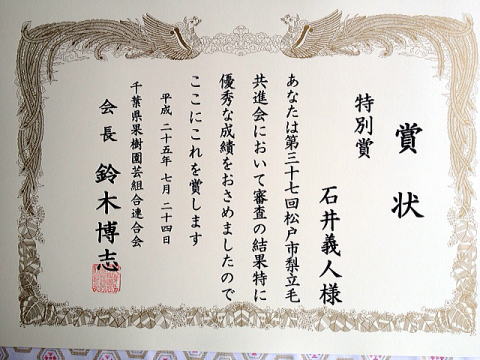 賞状
特別賞
石井義人様
あなたは第三十七回松戸市梨立毛
共進会において審査の結果特に
優秀な成績をおさめましたので
ここにこれを賞します
平成二十五年七月二十四日
千葉県果樹園芸組合連合会
会長 鈴木博志